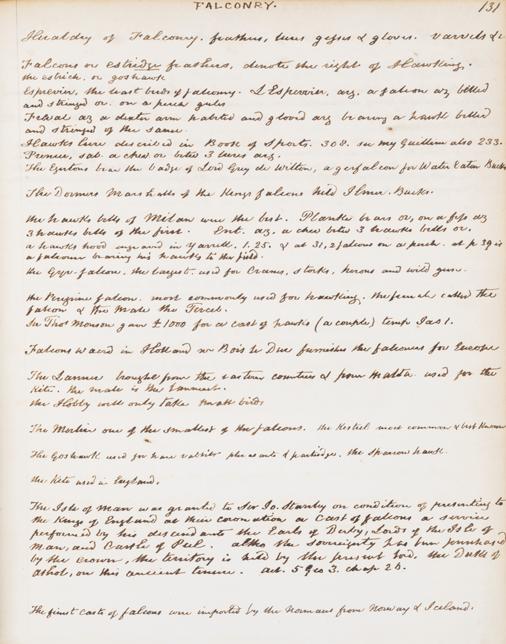 FALCONRY. 131
Heraldry of Falconry. feathers, lures gesses & gloves. varvels &c
Falcons or estridge feathers, denote the right of Hawking.
the estrich. or goshawk
Espevier, the least bird of falconry. L'Espervier, arg. a falcon az belled
and stringed or. on a perch gules
Frewal az a dexter arm habited and gloved arg bearing a hawk belled
and stringed of the same.
Hawks lure described in Book of Sports. 308. see my Guillim also 233.
sab. a chev or betw 3 lures arg.
The Egertons bear the badge of Lord Grey de Wilton, a gerfalcon for Water Eaton Bucks
The Dormers Marshalls of the Kings falcons held Ilmer. Bucks.
the hawks bells of Milan were the best. Planke bears or, on a fess az
3 hawks bells of the first. Ent. az, a chev betw 3 hawks bells or.
a hawks hood engraved in Yarrell. 1. 25. & at 31, 2 falcons on a perch. at p 39 is
a falconer bearing his hawks to the field.
the Gyr falcon, the largest. used for Cranes, storks, herons and wild geese.
the Peregrine falcon. most commonly used for hawking. the female called the
falcon & the male the Tercel.
Sir Thos Monson gave £1000 for a cast of hawks (a couple) temp Jas 1.
Falcons Waerd in Holland nr Bois le Duc furnishes the falconers for Europe
The Lanner brought from the eastern countries & from Malta. used for the
Kite. the male is the Lanneret.
the Hobby will only take small birds
The Merlin one of the smallest of the falcons. the Kestrel most common & best known
The Goshawk used for hare rabbits pheasants & partridge. the Sparrow hawk.
the Kite used in England.
The Isle of Man was granted to Ser Jo. Stanley on condition of presenting to
the Kings of England at their coronation a Cast of falcons a service
performed by his descendants the Earls of Derby, Lords of the Isle of
Man, and Castle of Peel. altho the sovereignty has been purchased
by the crown, the territory is held by the present lord, the Duke of
Athol, on this ancient tenure. act. 5 Geo 3. chap 26.
The finest casts of falcons were imported by the Normans from Norway & Iceland.